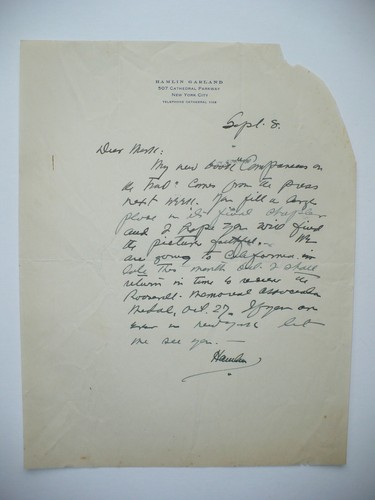 HAMLIN GARLAND
507 CATHEDRAL PARKWAY
NEW YORK CITY
TELEPHONE CATHEDRAL
Sept. 8.
Dear
My new book "Companions on
the Trail" comes from the press
next week. You fill a large
place in its final chapters
and I hope you will find
the picture faithful. — We
are going to California in
late this month but I shall
return in time to receive the
Roosevelt Memorial Association
Medal, Oct. 27. If you are
ever in New York let
me see you. —
Hamlin